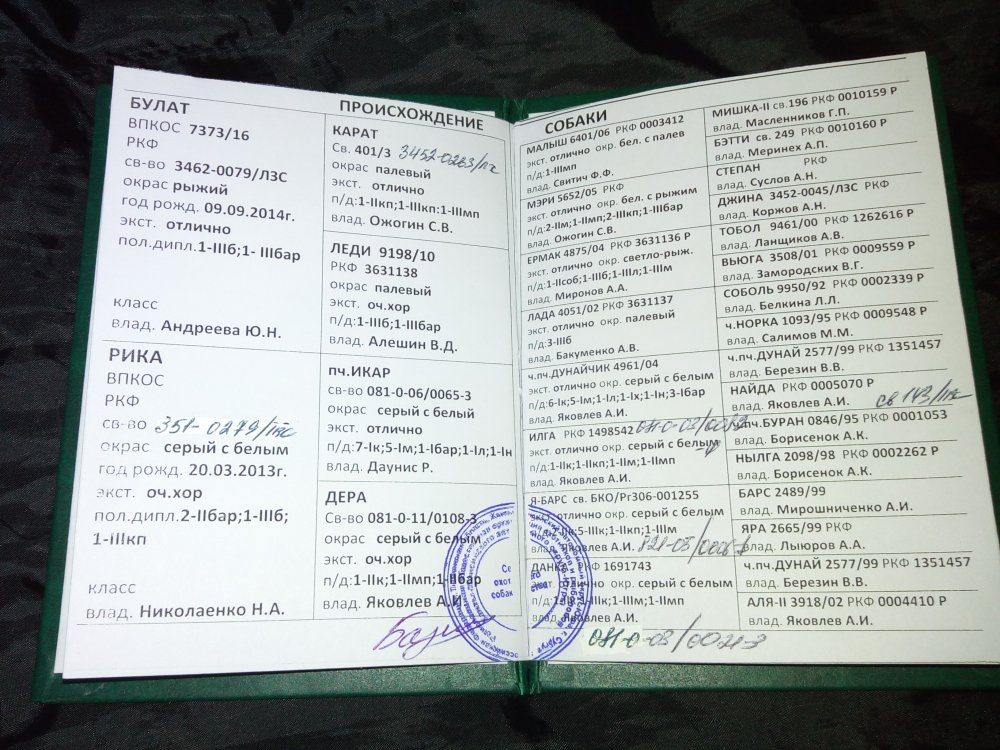 БУЛАТ
ВПКОС 7373/16
РКФ
св-во 3462-0079/ЛЗС
окрас рыжий
год рожд. 09.09.2014г.
экст. отлично
пол.дипл.1-IIIб;1- IIIбар
класс
влад. Андреева Ю.Н.
РИКА
ВПКОС
РКФ
св-во 351-0279/лзс
окрас серый с белым
год рожд. 20.03.2013г.
экст. оч.хор
пол.дипл.2-IIбар;1-IIIб;
1-IIIкп
класс
влад. Николаенко Н.А.
ПРОИСХОЖДЕНИЕ
КАРАТ
Св. 401/3
окрас палевый
экст. отлично
п/д:1-IIкп;1-IIIкп:1-IIIмп
влад. Ожогин С.В.
ЛЕДИ 9198/10
РКФ 3631138
окрас палевый
экст. оч.хор
п/д:1-IIIб;1-IIIбар
влад. Алешин В.Д.
пч.ИКАР
св-во 081-0-06/0065-3
окрас серый с белый
экст. отлично
п/д:7-Iк;5-Iм;1-Iбар;1-Iл;1-Iн
влад. Даунис Р.
ДЕРА
Св-во 081-0-11/0108-3
окрас серый с белым
экст. оч.хор
п/д:1-IIк;1-IIмп;1-IIбар
влад. Яковлев А.И.
СОБАКИ
МАЛЫШ 6401/06 РКФ 0003412
экст. отлично окр. бел. с палев
п/д:1-IIIмп
влад. Свитич Ф.Ф.
МЭРИ 5652/05 РКФ
экст. отлично окр. бел. с рыжим
п/д:2-IIм;1-IIмп;2-IIIкп;1-IIIбар
влад. Ожогин С.В.
ЕРМАК 4875/04 РКФ 3631136 Р
экст. отлично окр. светло-рыж.
п/д:1-IIсоб;1-IIIб;1-IIIл;1-IIIм
влад. Миронов А.А.
ЛАДА 4051/02 РКФ 3631137
экст. отлично окр. палевый
п/д:3-IIIб
влад. Бакуменко А.В.
ч.пч.ДУНАЙЧИК 4961/04
экст. отлично окр. серый с белым
п/д:6-Iк;5-Iм;1-Iл;1-Iх;1-Iн;3-Iбар
влад. Яковлев А.И.
ИЛГА РКФ 1498542
экст. отлично окр. серый с белым
п/д:1-IIк;1-IIкп;1-IIм;1-IIмп
влад. Яковлев А.И.
Я-БАРС св. БКО/Рг306-001255
экст. отлично окр. серый с белым
5-IIIк;1-IIкп;1-IIIм
влад. Яковлев А.И.
ДАНКА РКФ 1691743
экст. отлично окр. серый с белым
1-IIIм;1-IIмп
влад. Яковлев А.И.
081-0-03/0021-3
МИШКА-II св.196 РКФ 0010159 Р
влад. Масленников Г.П.
БЭТТИ св. 249 РКФ 0010160 Р
влад. Меринех А.П.
СТЕПАН РКФ
влад. Суслов А.Н.
ДЖИНА 3452-0045/ЛЗС РКФ
влад. Коржов А.Н.
ТОБОЛ 9461/00 РКФ 1262616 Р
влад. Ланщиков А.В.
ВЬЮГА 3508/01 РКФ 0009559 Р
влад. Замородских В.Г.
СОБОЛЬ 9950/92 РКФ 0002339 Р
влад. Белкина Л.Л.
ч.НОРКА 1093/95 РКФ 0009548 Р
влад. Салимов М.М.
ч.пч.ДУНАЙ 2577/99 РКФ 1351457
влад. Березин В.В.
НАЙДА РКФ 0005070 Р
влад. Яковлев А.И.
ч.пч.БУРАН 0846/95 РКФ 0001053
влад. Борисенок А.К.
НЫЛГА 2098/98 РКФ 0002262 Р
влад. Борисенок А.К.
БАРС 2489/99
влад. Мирошниченко А.И.
ЯРА 2665/99 РКФ
влад. Лыюров А.А.
ч.пч.ДУНАЙ 2577/99 РКФ 1351457
влад. Березин В.В.
АЛЯ-II 3918/02 РКФ 0004410 Р
влад. Яковлев А.И.